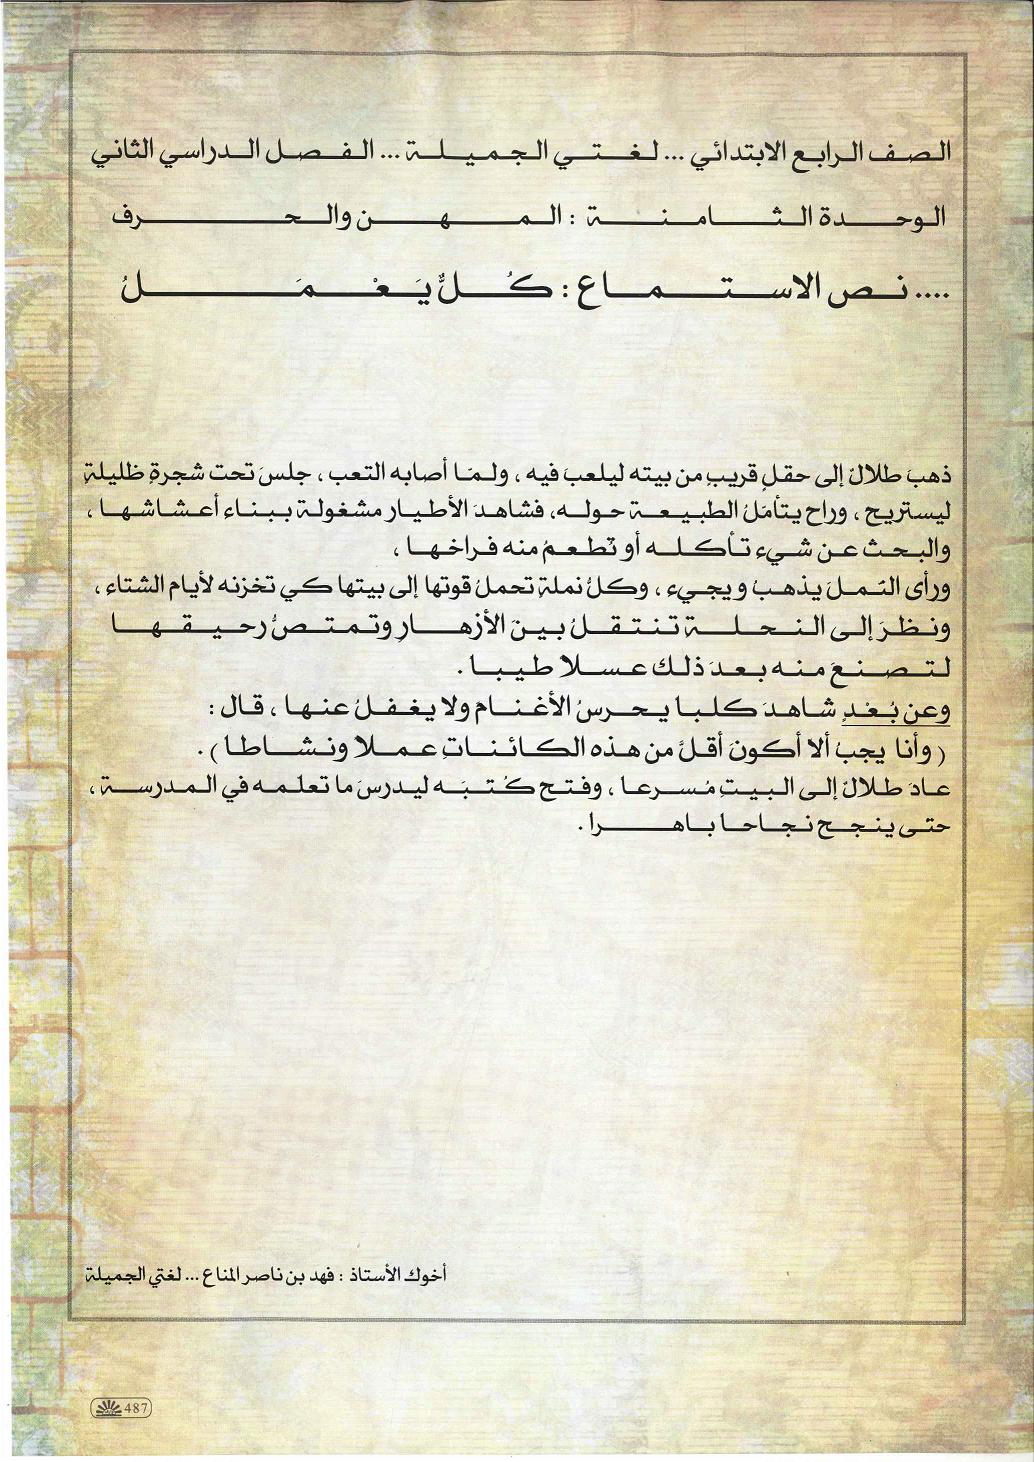 الصف الرابع الابتدائي ... لغتي الجميلة ... الفصل الدراسي الثاني
الوحدة الثامنة : المهن والحرف
.... نص الاستماع : كُلٌّ يَعْمَلُ
ذهبَ طلالٌ إلى حقلٍ قريبٍ من بيته ليلعبَ فيه ، ولمّا أصابه التعب ، جلسَ تحت شجرةٍ ظليلة
ليستريح ، وراح يتأملُ الطبيعة حوله، فشاهدَ الأطيار مشغولة ببناء أعشاشها ،
والبحث عن شيء تأكله أو تُطعمُ منه فراخها ،
ورأى النّملَ يذهبُ ويجيء ، وكلُّ نملة تحملُ قوتها إلى بيتها كي تخزنه لأيام الشتاء ،
ونظرَ إلى النحلة تنتقلُ بينَ الأزهارِ وتمتصُّ رحيقها
لتصنعَ منه بعدَ ذلك عسلا طيبا .
وعن بُعْدٍ شاهدَ كلبا يحرسُ الأغنام ولا يغفلُ عنها ، قال :
( وأنا يجبُ ألا أكونَ أقلَّ من هذه الكائناتِ عملا ونشاطا ) .
عادَ طلالٌ إلى البيتِ مُسرعا ، وفتح كُتبَه ليدرسَ ما تعلمه في المدرسة ،
حتى ينجح نجاحا باهرا .
أخوك الأستاذ : فهد بن ناصر المناع ... لغتي الجميلة
487